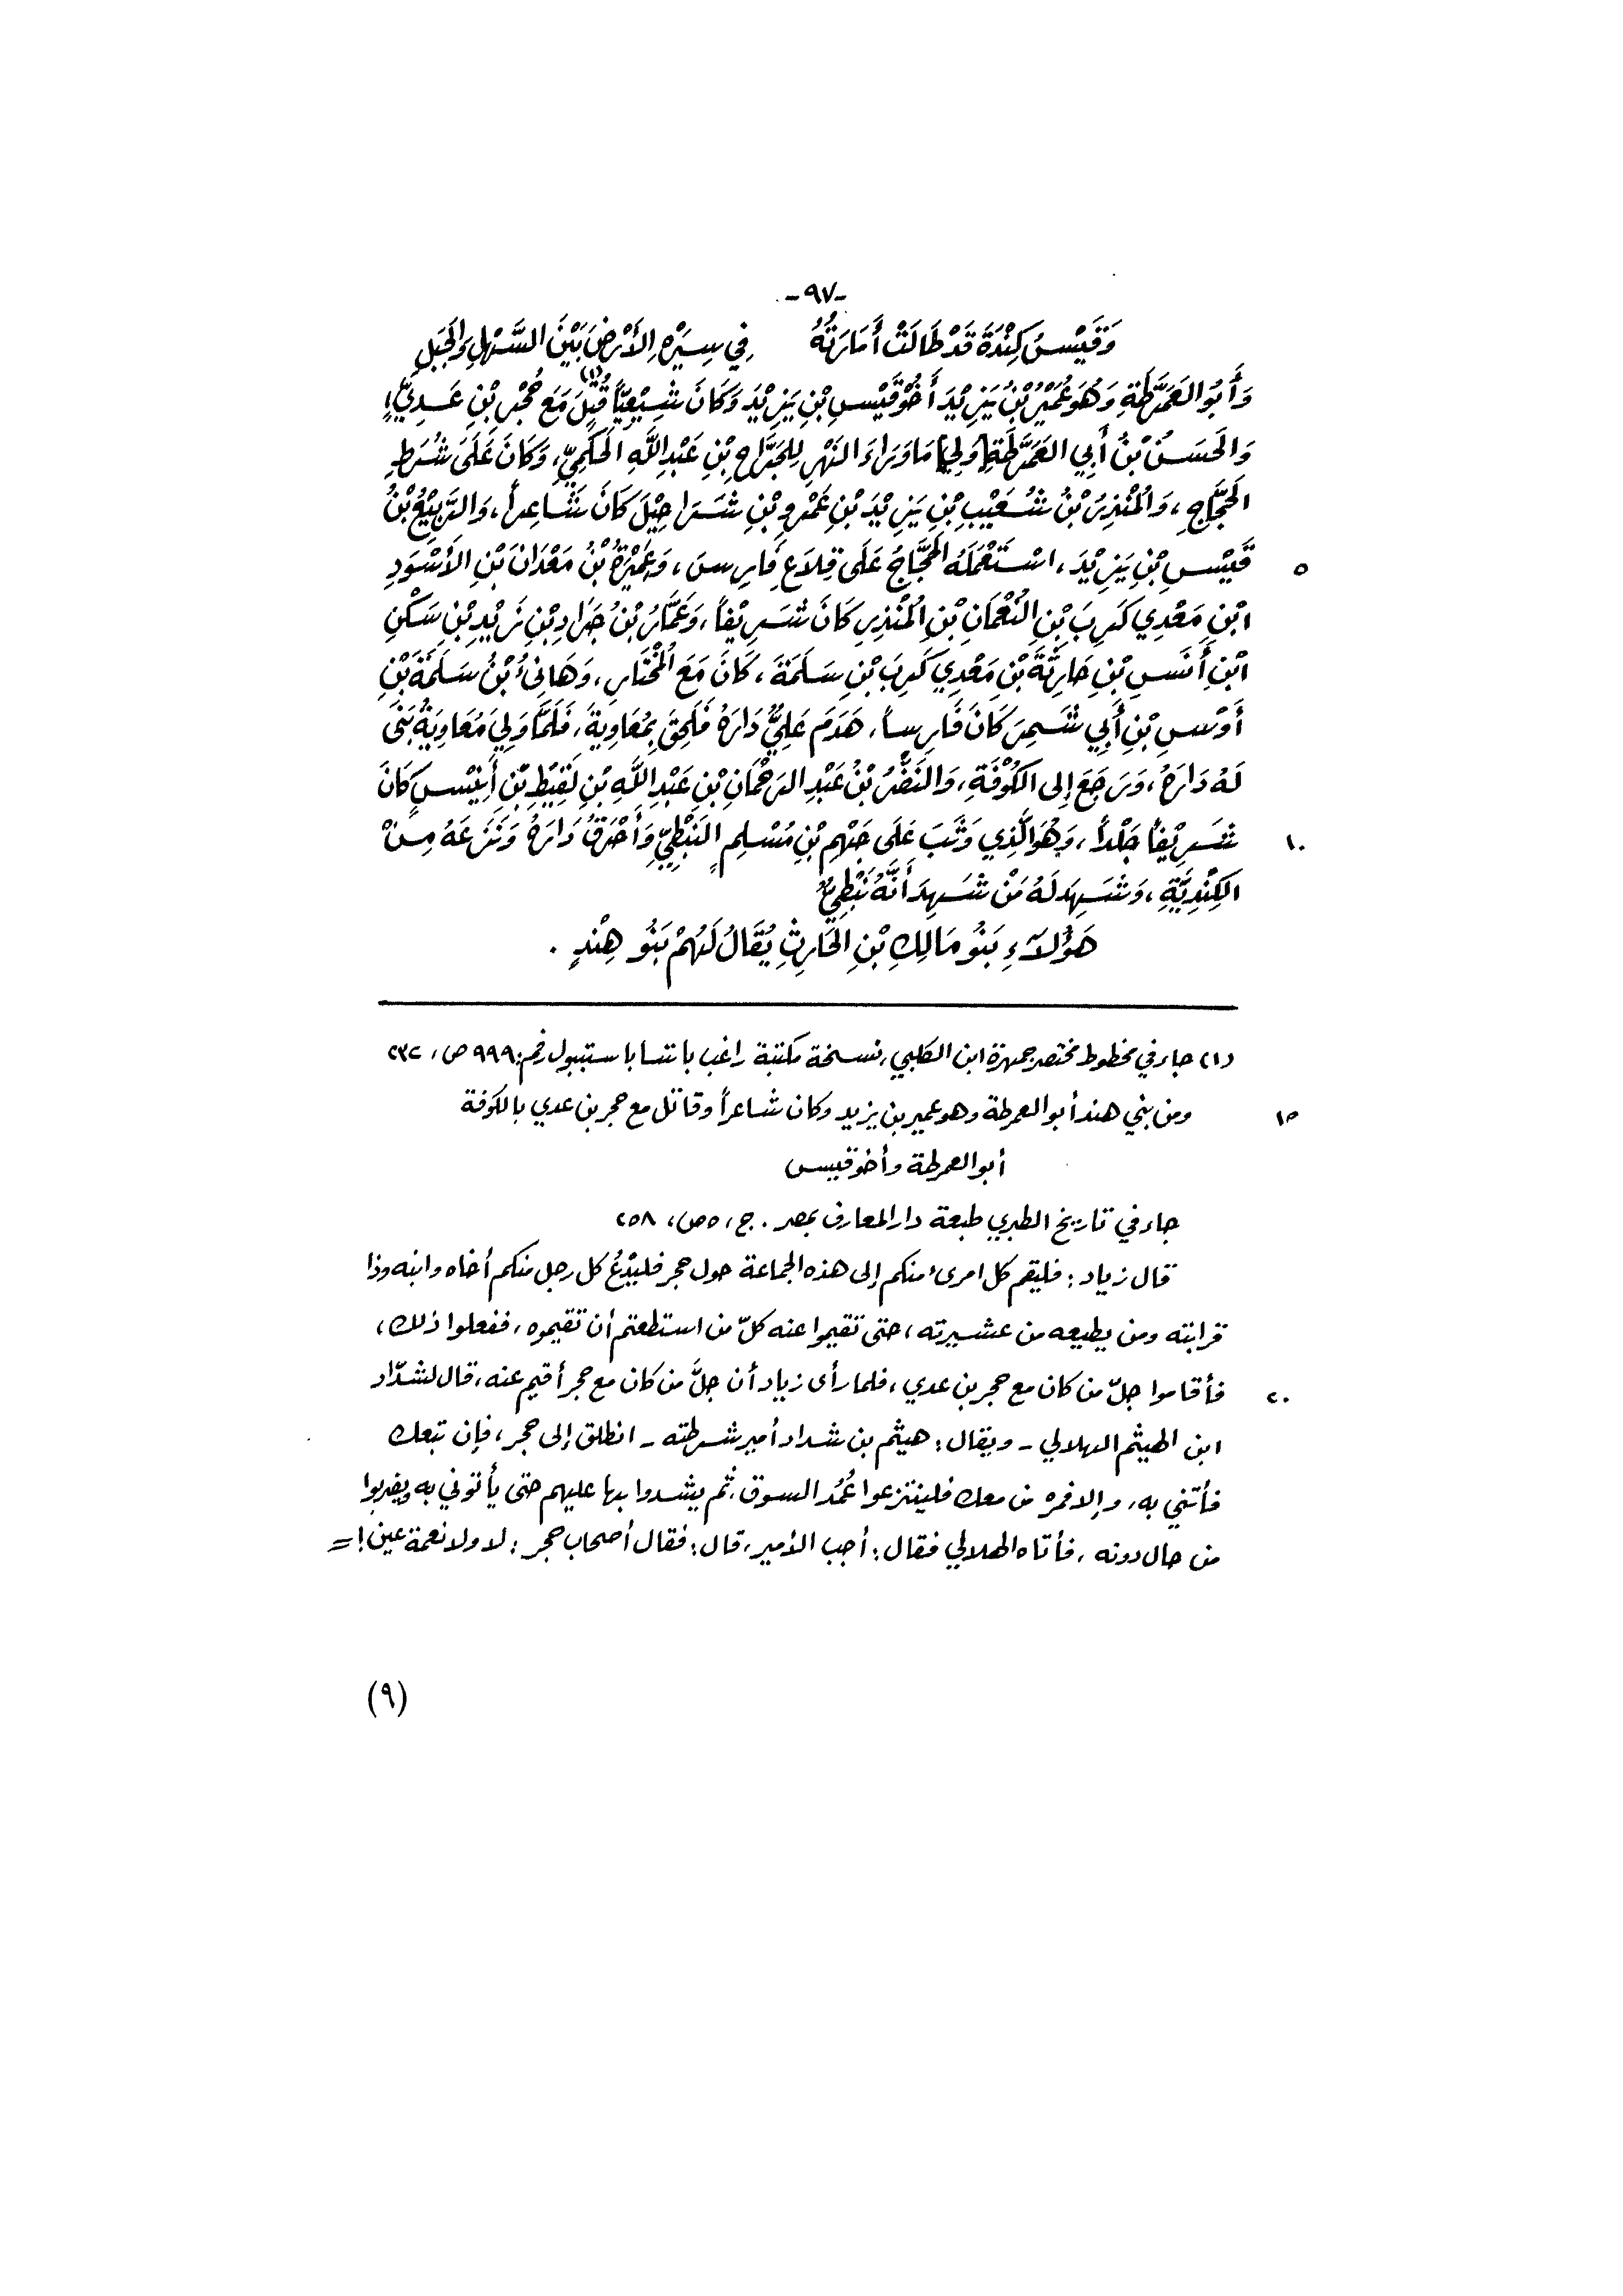 -٩٧-
وَقَيْسُ كِنْدَةَ قَدْ طَالَتْ أَمَارَتُهُ في سِيَرْةِ الأَرْضِ بَيْنَ السَّهْلِ وَالجَبَلِ
وَأَبُو العَمَرَّطَةِ وَهُوَ عُمَيْرُ بْنُ يَزِيْدَ أَخُو قَيْسِ بْنِ يَزِيْدَ وَكَانَ شِيْعِيّاً قُتِلَ(١) مَعَ حُجْرِ بْنِ عَدِيٍّ،
وَالحَسَنُ بْنُ أَبِي العَمَرَّطَةِ [وَلِيَ] مَا وَرَاءَ النَهْرِ لِلجَرَّاحِ بْنِ عَبْدِ اللَّهِ الحَكَمِيِّ، وَكَانَ عَلَى شُرَطِ
الحَجَّاجِ، وَالمُنْذِرُ بْنُ شُعَيْبِ بْنِ يَزِيْدَ بْنِ عَمْرِو بْنِ شَرَاحِيْلَ كَانَ شَاعِراً، وَالرَّبِيْعُ بْنُ
٥ قَيْسِ بْنِ يَزِيْدَ، اسْتَعْمَلَهُ الحَجَّاجُ عَلَى قِلَاعِ فَارِسَ، وَعَمِيْرَةُ بْنُ مَعْدَانَ بْنِ الأَسْوَدِ
ابْنِ مَعْدِي كَرِبَ بْنِ النُعْمَانِ بْنِ المُنْذِرِ كَانَ شَرِيْفاً، وَعَمَّارُ بْنُ جَرَادِ بْنِ زَيْدِ بْنِ سَكَنِ
ابْنِ أَنَسِ بْنِ حَارِثَةَ بْنِ مَعْدِي كَرِبَ بْنِ سَلَمَةَ، كَانَ مَعَ المُخْتَارِ، وَهَانِئُ بْنُ سَلَمَةَ بْنِ
أَوْسِ بْنِ أَبِي شَمِرَ كَانَ فَارِساً، هَدَمَ عَلِيٌّ دَارَهُ فَلَحِقَ بِمُعَاوِيَةَ، فَلَمَّا وَلِيَ مُعَاوِيَةُ بَنَى
لَهُ دَارَهُ، وَرَجَعَ إلى الكُوْفَةِ، وَالنَضْرُ بْنُ عَبْدِ الرَحْمَانِ بْنِ عَبْدِ اللَّهِ بْنِ لَقِيْطِ بْنِ أُنِيْسٍ كَانَ
١٠ شَرِيْفاً جَلْداً، وَهُوَ الَّذِي وَثَبَ عَلَى جَهْمِ بْنِ مُسْلِمٍ النَبْطِيِّ وَأَحْرَقَ دَارَهُ وَنَزَعَهُ مِنْ
الكِنْدِيَّةِ، وَشَهِدَ لَهُ مَنْ شَهِدَ أَنَّهُ نَبْطِيٌّ
هَؤُلَآءِ بَنُو مَالِكِ بْنِ الحَارِثِ يُقَالُ لَهُمْ بَنُو هِنْدٍ.
(١) جاء في مخطوط مختصر جمهرة ابن الكلبي، نسخة مكتبة راغب باشا باستنبول رقم: ٩٩٩ ص، ٢٣٢
١٥ ومن بني هند أبو العمرطة وهو عمير بن يزيد وكان شاعراً وقاتل مع حجر بن عدي بالكوفة
أبو العمرطة وأخو قيس
جاء في تاريخ الطبري طبعة دار المعارف بمصر. ج، ٥ ص، ٢٥٨
قال زياد: فليقم كل امرئ منكم إلى هذه الجماعة حول حجر فليَدْعُ كل رجل منكم أخاه وابنه وذا
قرابته ومن يطيعه من عشيرته، حتى تقيموا عنه كلّ من استطعتم أن تقيموه، ففعلوا ذلك،
٢٠ فأقاموا جلّ من كان مع حجر بن عدي، فلما رأى زياد أن جلَّ من كان مع حجر أقيم عنه، قال لشدّاد
ابن الهيثم الهلالي - ويقال: هيثم بن شداد أمير شرطته - انطلق إلى حجر، فإن تبعك
فأتني به، وإلا فمره من معك فلينتزعوا عُمُد السوق، ثم يشدوا بها عليهم حتى يأتوني به ويضربوا
من حال دونه، فأتاه الهلالي فقال: أجب الأمير، قال: فقال أصحاب حجر: لا ولا نعمة عين! =
(٩)